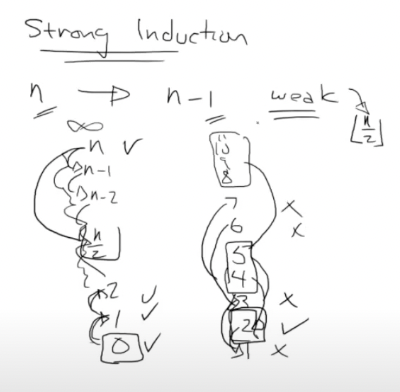 Strong Induction
n → n-1 weak
⌊n/2⌋
∞
n ✓
n-1
n-2
n/2
2 ✓
1 ✓
0 ✓
11
10
9
8
7 x
6 x
5
4
3 x
2 ✓
1 x